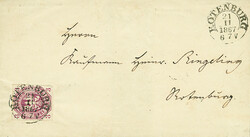 ROTENBURG
21
II
1867
6-7 V
Herrn
Kaufmann Heinr. Ringeling
Rotenburg.
ROTENBURG